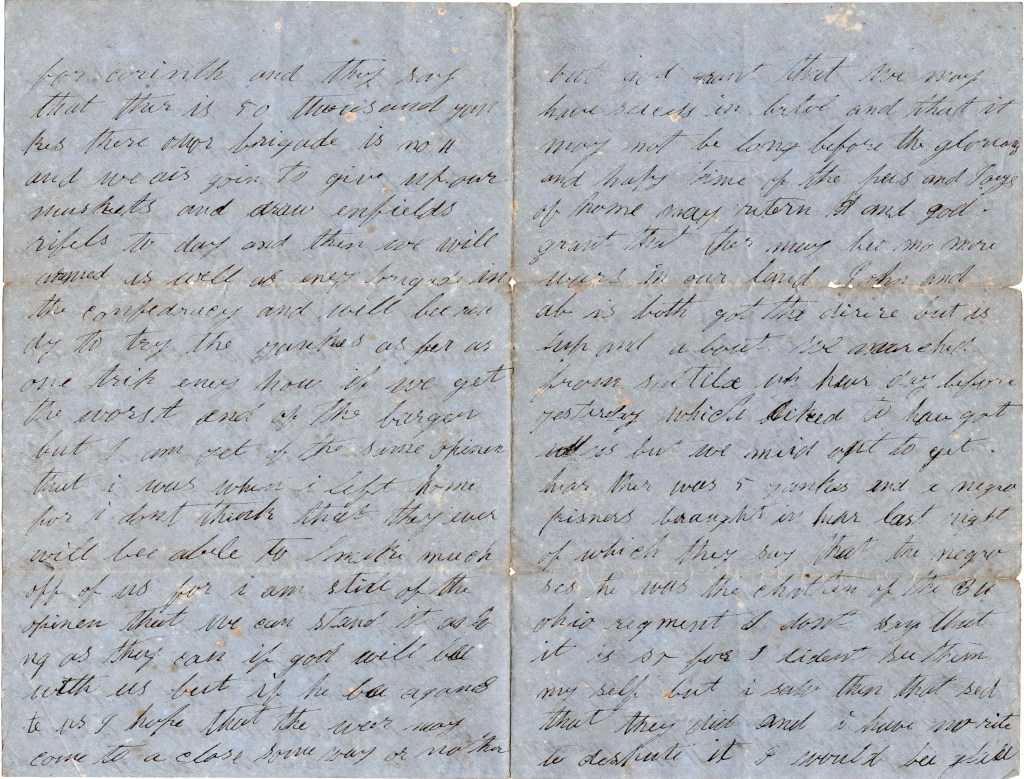 for corinth and they say
that ther is 50 thousand yan
kes there ower brigade is no 4
and we air goin to give up our
muskets and draw enfields
rifels to day and then we will
armed as well as eney brigade in
the confedracy and will bee rea
dy to try the yankes as fer as
one trip eney how if we get
the worst end of the barger
but I am yet of the same opinen
that i was when i left home
for i dont think that they ever
will bee able to make much
off of us for i am still of the
opinen that we can stand it as lo
ng as they can if god will bee
with us but if he bee agance
te us I hope that the wer may
come to a close some way or nother
but god grant that we may
have secess in batel and that it
may not be long before the glorious
and hapy time of the pees and Joys
of home may return & and god
grant that ther may bee no more
wars in our land John and
ab is both got the dirire but is
up and a bout we marched
from hear day before
yesterday which liked to have got
us but we maid out to get
hear ther was 5 yankes and a negro
prisners braught in hear last night
of which they say that the negro
ses he was the of the
ohio regment I dont say that
it is so for I dident see them
my self but i saw them that sed
that they did and i have no rite
to despute it I would bee glad